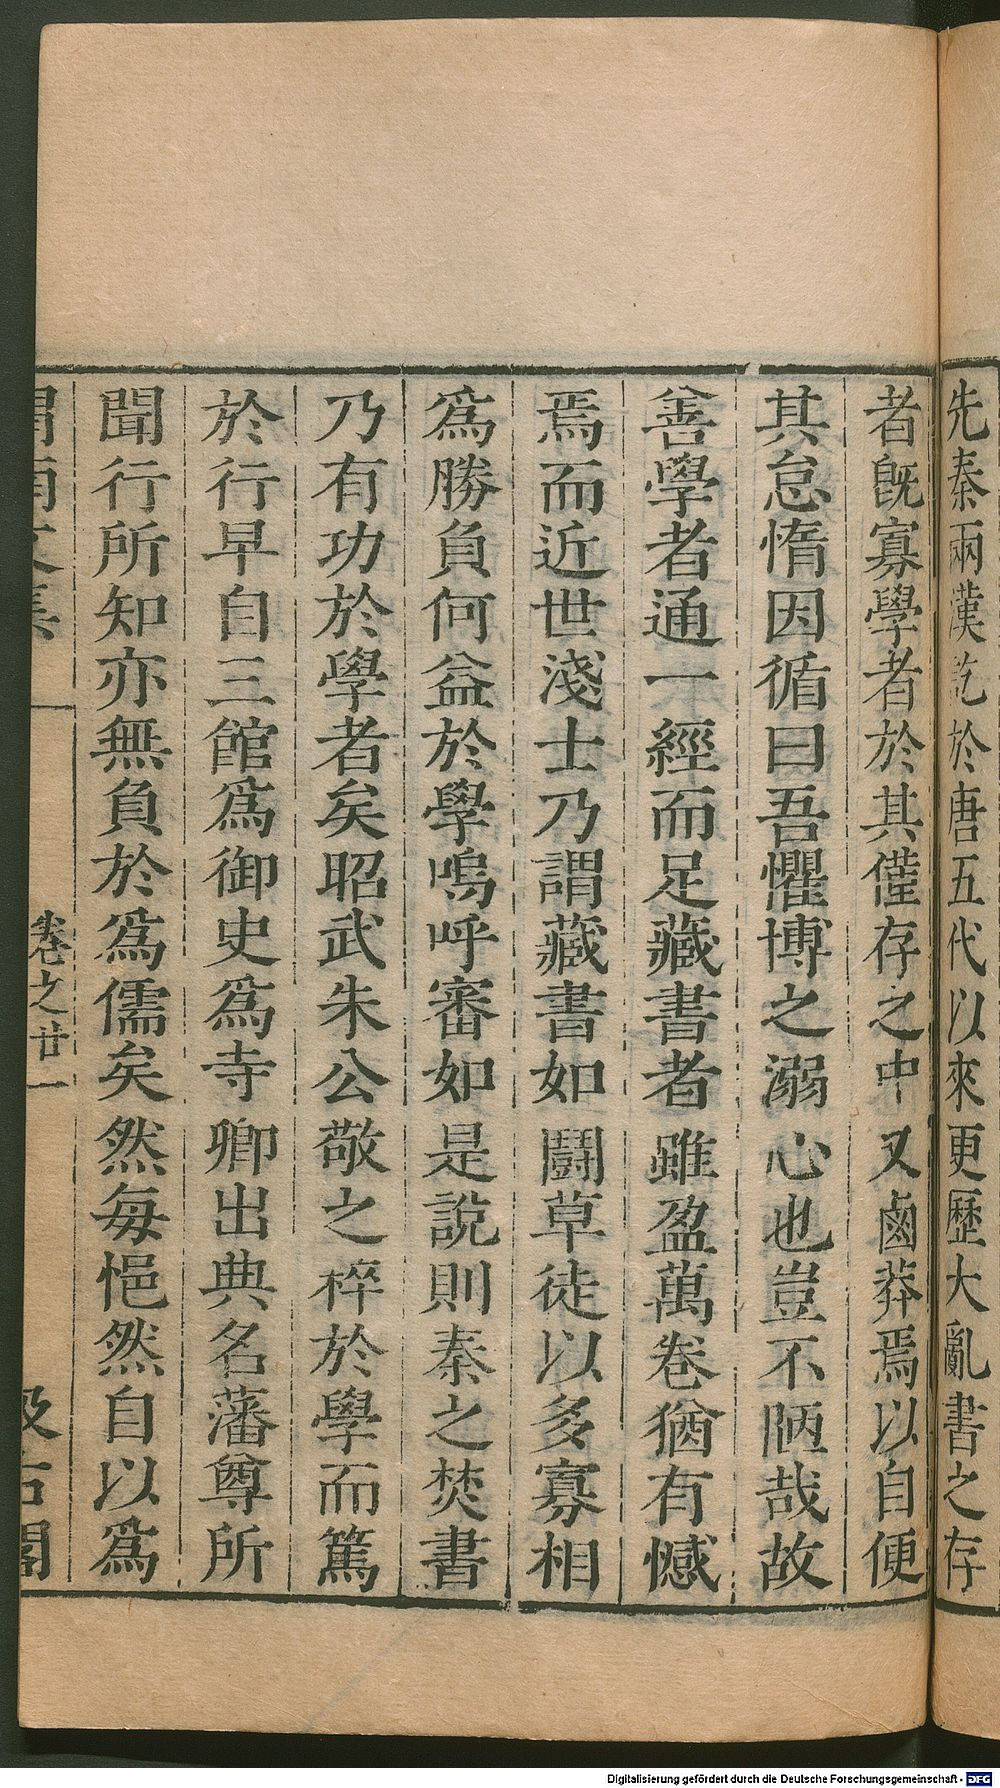 先秦兩漢訖於唐五代以來更歷大亂書之存
者旣寡學者於其僅存之中又鹵莽焉以自便
其怠惰因循曰吾懼博之溺心也豈不陋哉故
善學者通一經而足藏書者雖盈萬卷猶有憾
焉而近世淺士乃謂藏書如鬪草徒以多寡相
爲勝負何益於學嗚呼審如是說則秦之焚書
乃有功於學者矣昭武朱公敬之粹於學而篤
於行早自三館爲御史爲寺卿出典名藩尊所
聞行所知亦無負於爲儒矣然每悒然自以爲
渭南文集 卷之廿一 汲古閣
Digitalisierung gefördert durch die Deutsche Forschungsgemeinschaft - DFG